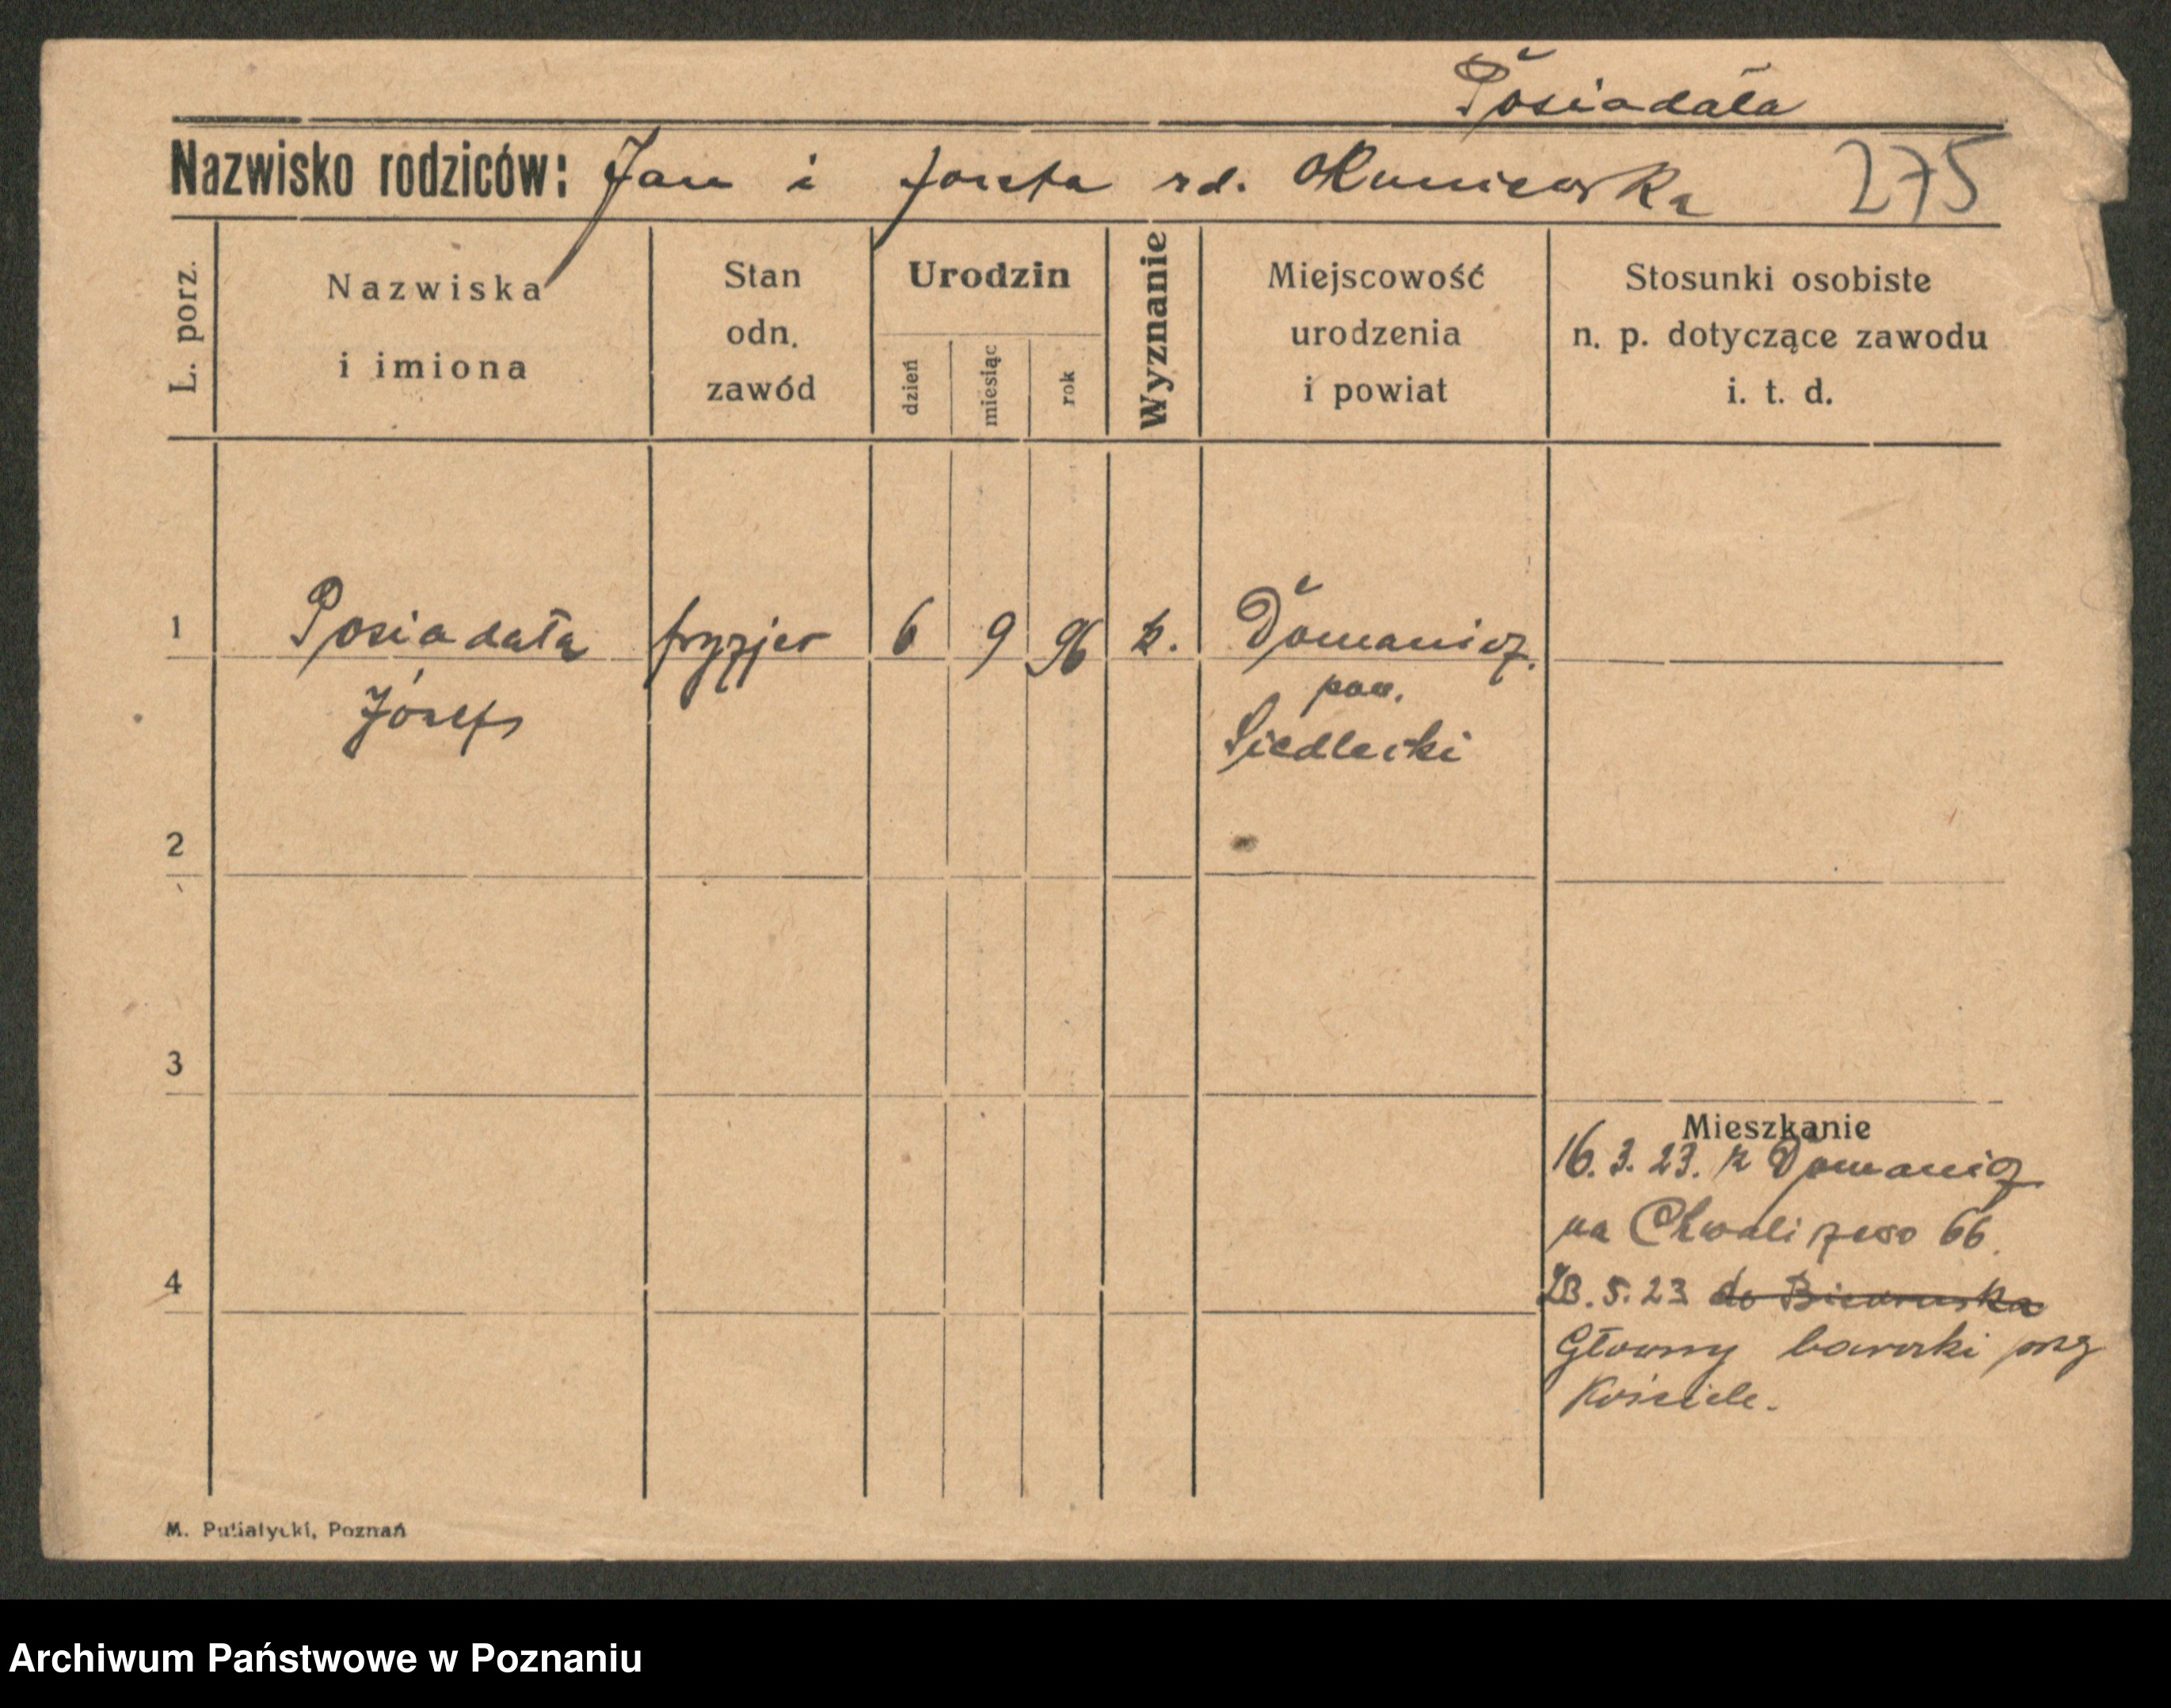 Posiadała
Nazwisko rodziców: Jan i Józefa rd. Okuniewska 275
L. porz.
Nazwiska
i imiona
Stan
odn.
zawód
Urodzin
dzień
miesiąc
rok
Wyznanie
Miejscowość
urodzenia
i powiat
Stosunki osobiste
n. p. dotyczące zawodu
i. t. d.
1 Posiadała fryzjer 6 9 96 k. Domanicz.
Józef
pow.
Siedlecki
2
3
Mieszkanie
16.3.23. z Domanicz
na Chwaliszewo 66.
4
23 do Biedruska
Główny
Kościele.
M. Putiatycki, Poznań
Archiwum Państwowe w Poznaniu